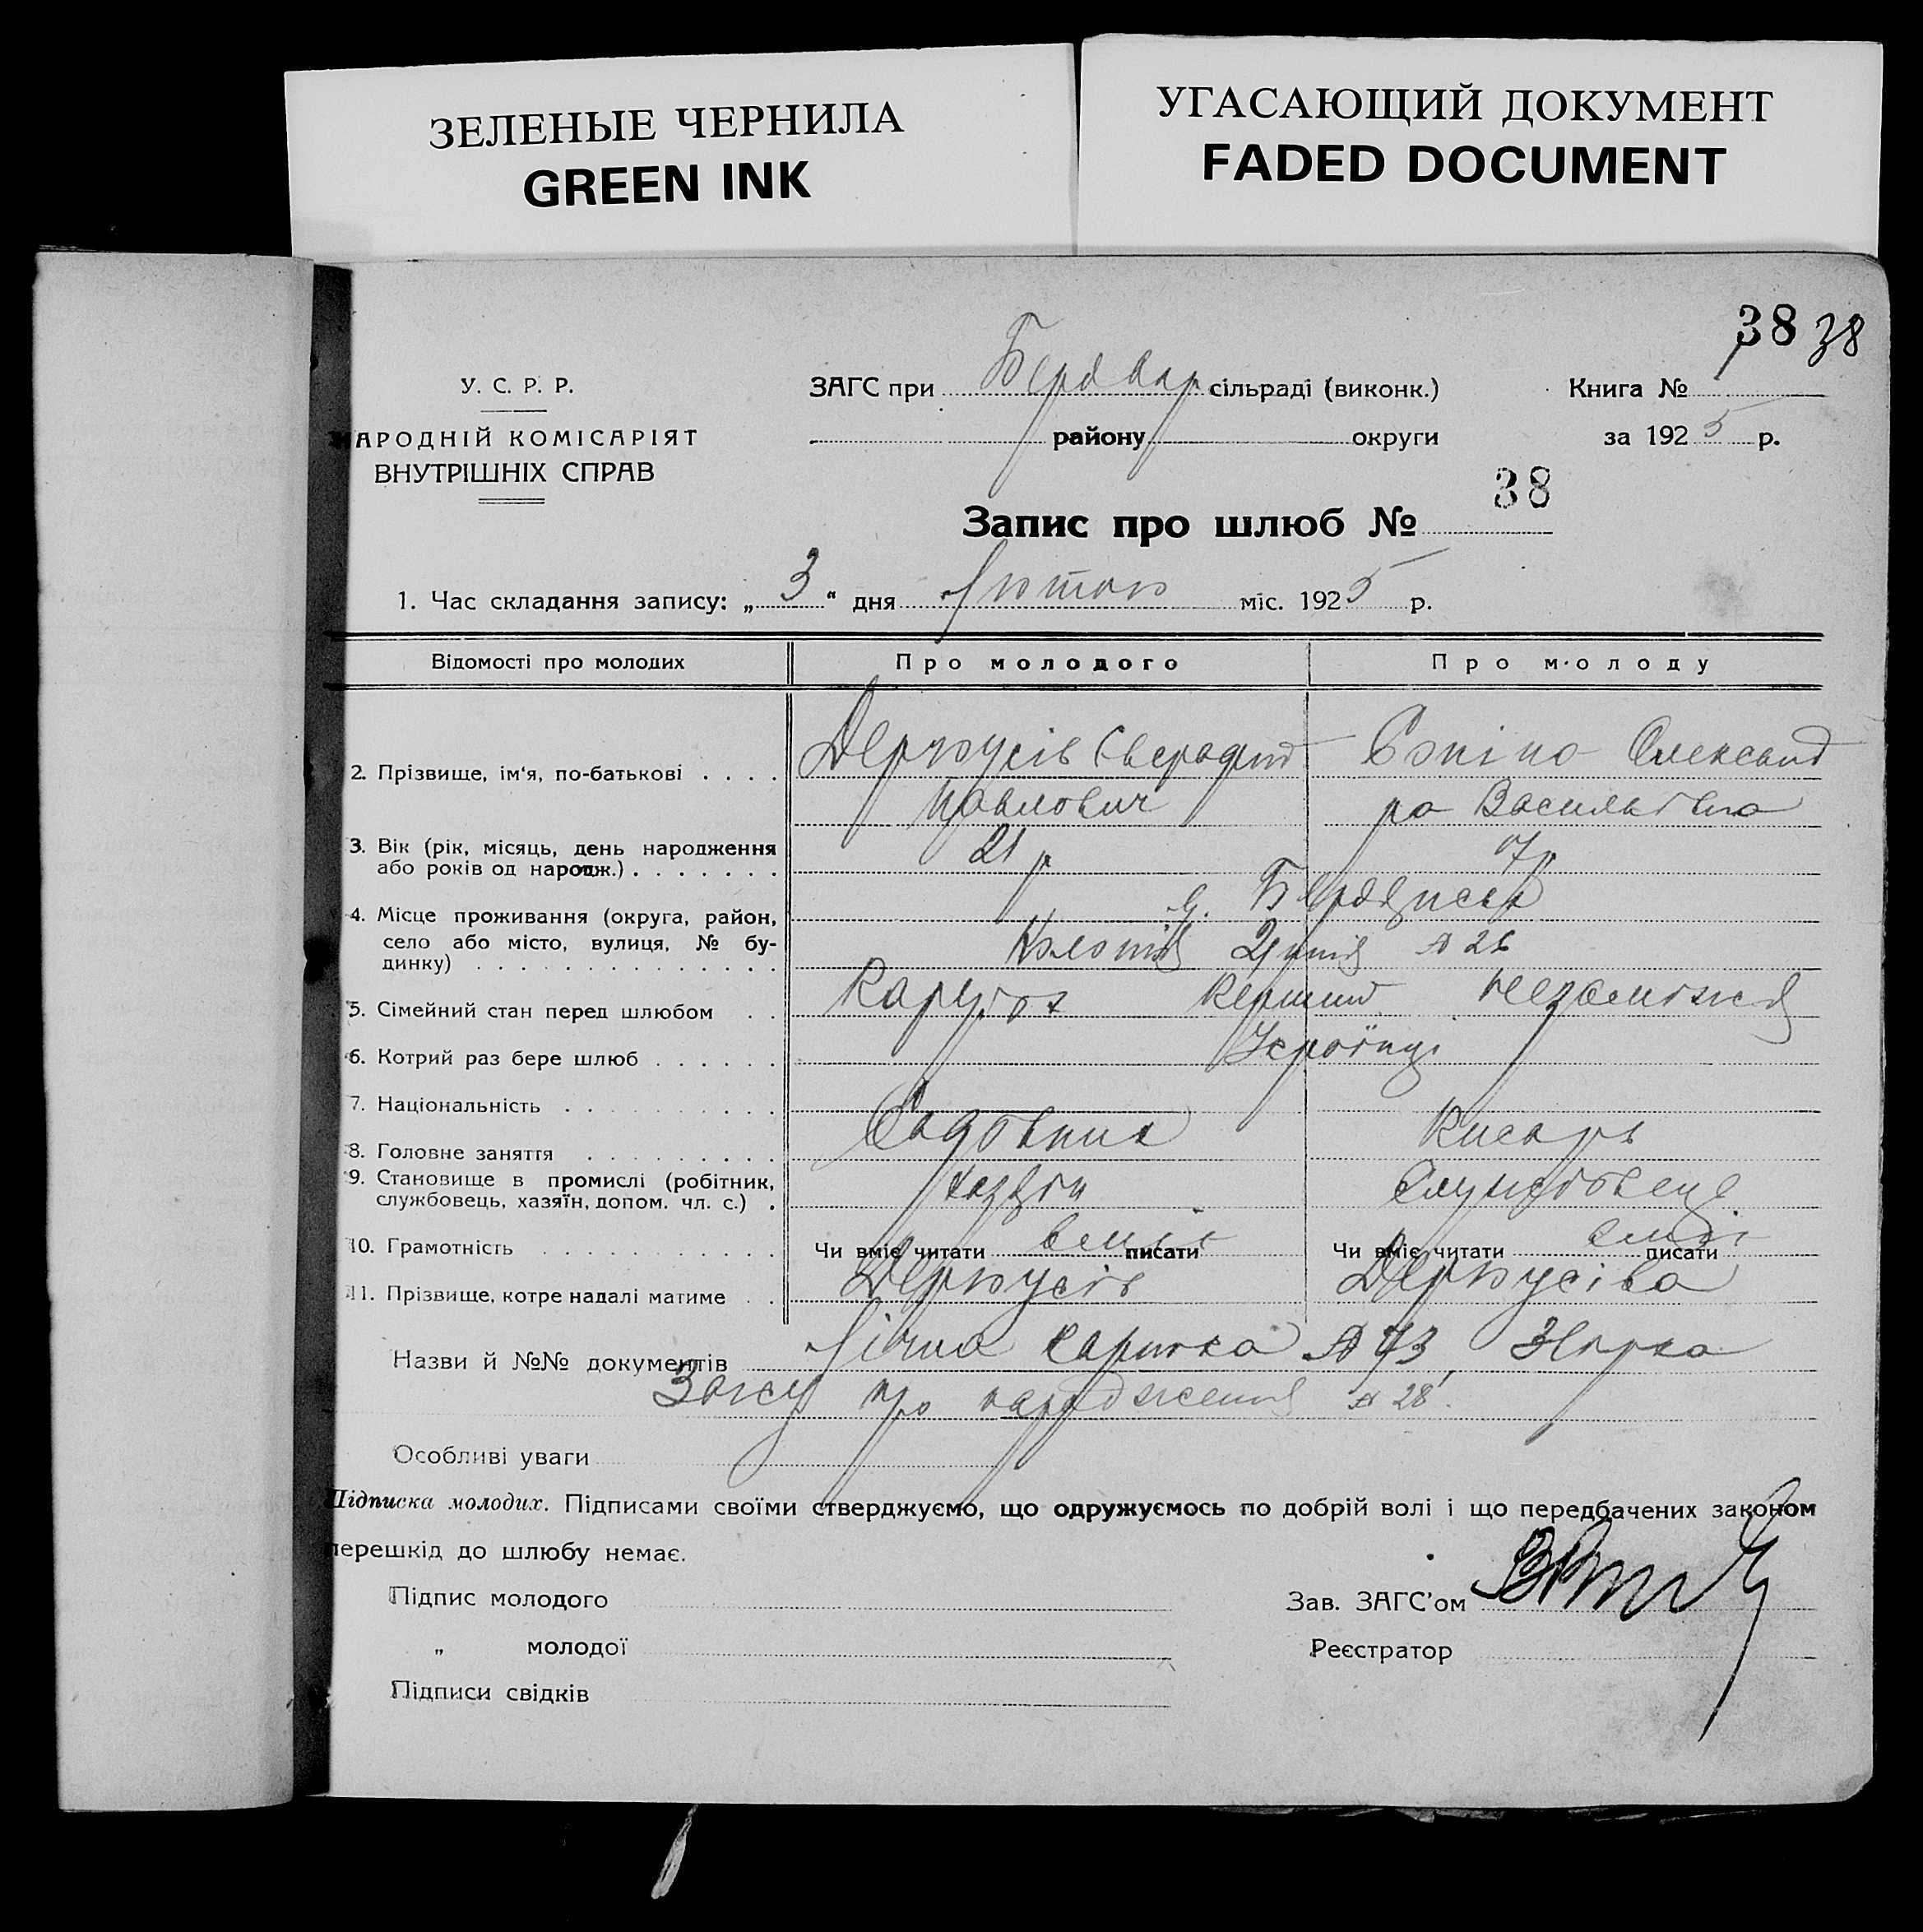 ЗЕЛЕНЫЕ ЧЕРНИЛА
GREEN INK
УГАСАЮЩИЙ ДОКУМЕНТ
FADED DOCUMENT
38 38
У. С. Р. Р.
НАРОДНІЙ КОМІСАРІЯТ
ВНУТРІШНІХ СПРАВ
ЗАГС при сільраді (виконк.)
району округи
Книга №
за 1925 р.
Запис про шлюб № 38
1. Час складання запису: „3“ дня Лютого міс. 1925 р.
Відомості про молодих Про молодого Про молоду
2. Прізвище, ім‘я, по-батькові Олександ
Павлович ра Василівна
3. Вік (рік, місяць, день народження
або років од народж.) 21 р
4. Місце проживання (округа, район,
село або місто, вулиця, № бу-
динку) № 26
5. Сімейний стан перед шлюбом незаможня
6. Котрий раз бере шлюб Українці
7. Національність
8. Головне заняття Садовник Писарь
9. Становище в промислі (робітник,
службовець, хазяїн, допом. чл. с.) Хазяїн Службовець
10. Грамотність Чи вміє читати вміє писати Чи вміє читати вміє писати
11. Прізвище, котре надалі матиме Деркусів Деркусіва
Назви й №№ документів Лічна картка № 73,
Загсу про народження № 28.
Особливі уваги
Підписка молодих. Підписами своїми стверджуємо, що одружуємось по добрій волі і що передбачених законом
перешкід до шлюбу немає.
Підпис молодого
„ молодої
Підписи свідків
Зав. ЗАГС’ом
Реєстратор